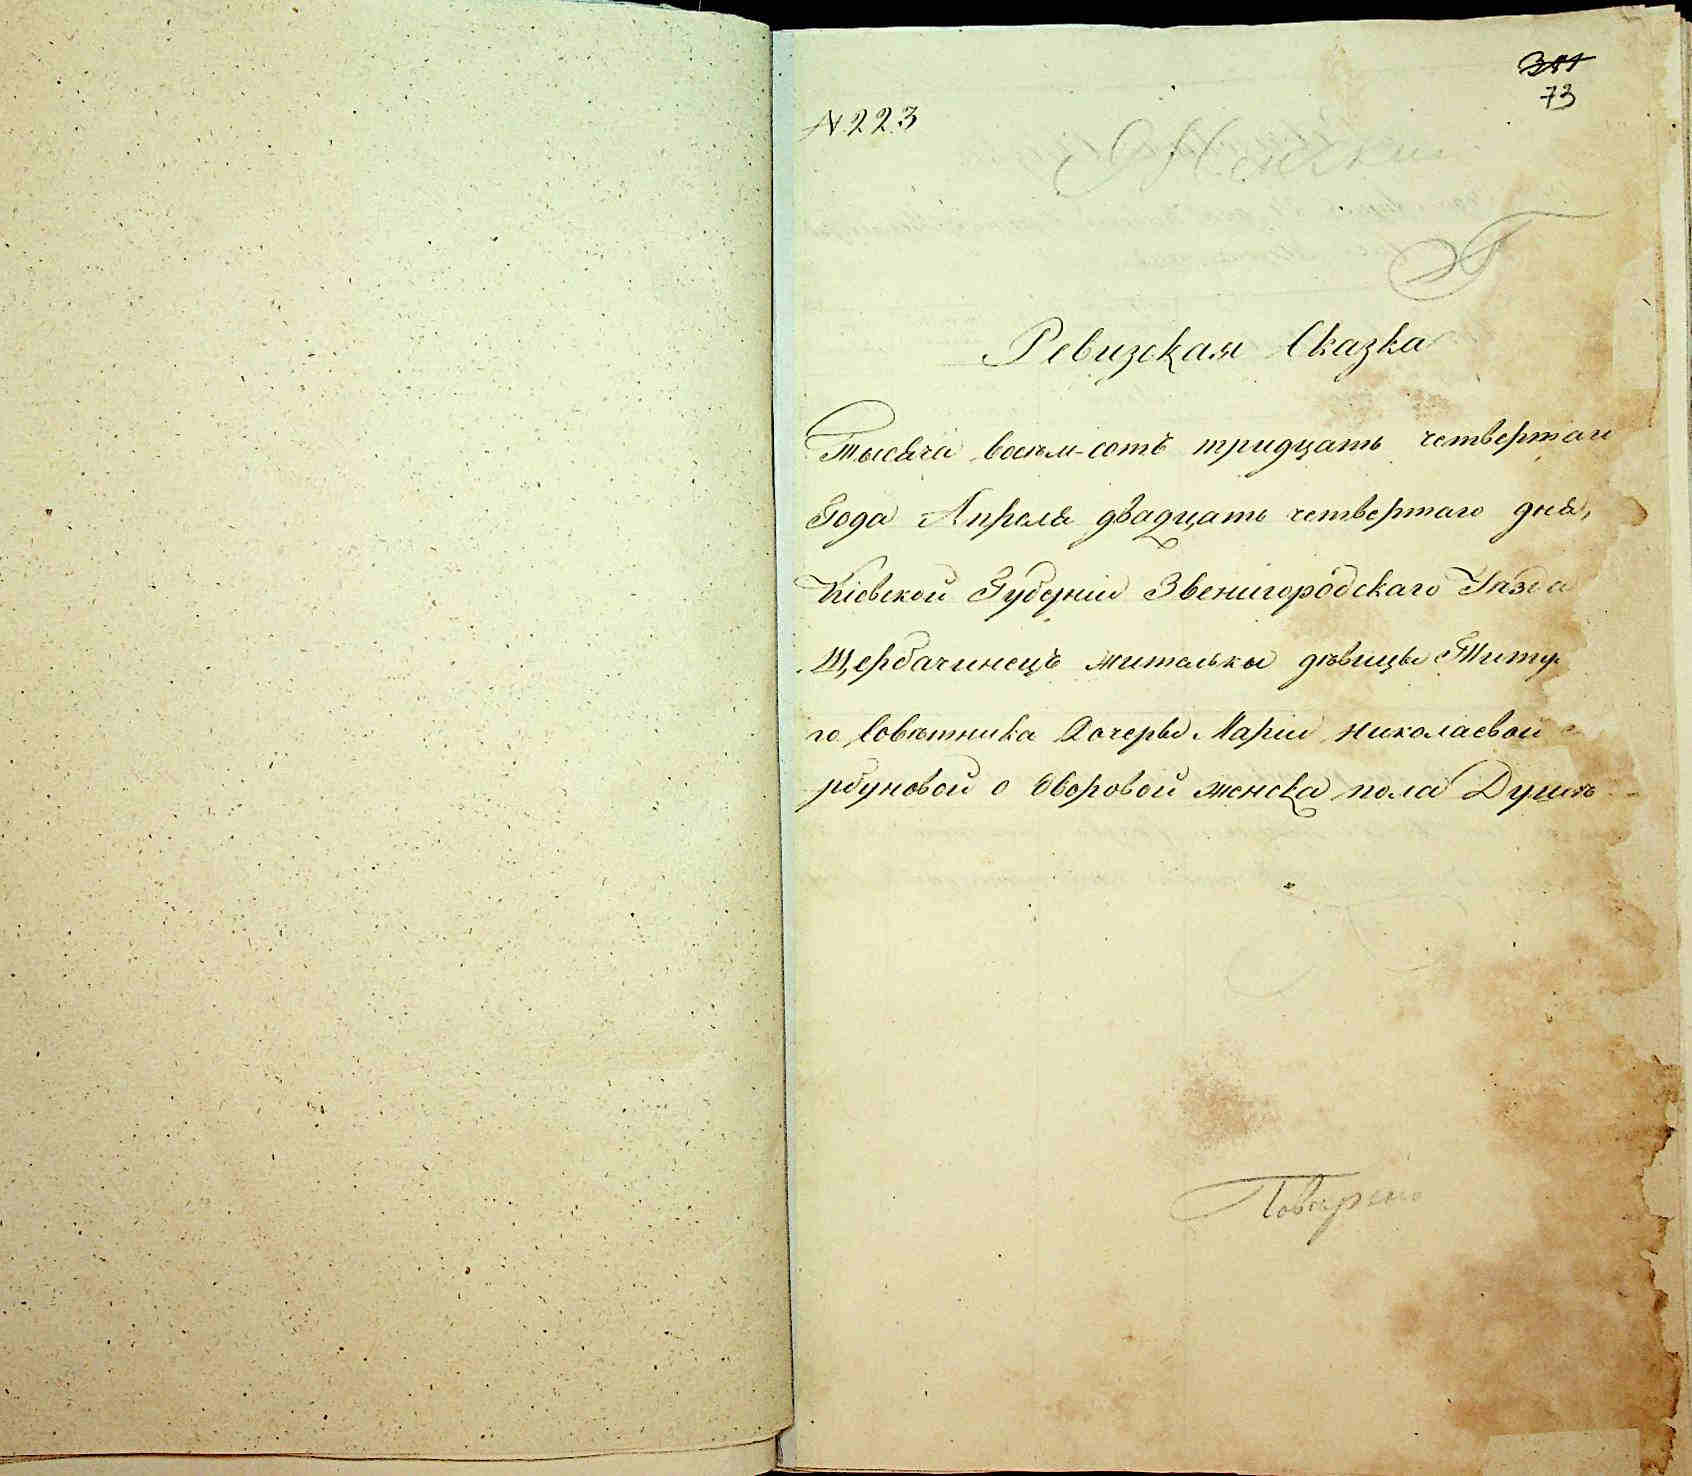 351
73
N. 223
Ревизская Сказка
Тысяча восем-сотъ тридцать четвертаго
Года Апреля двадцать четвертаго дня,
Кіевской Губерніи Звенигородскаго Уѣзда
Щербачинецъ жительки дѣвицы Титу
го Совѣтника Дочеры Маріи Николаевой
рбуновой о Дворовой женска пола Душѣ